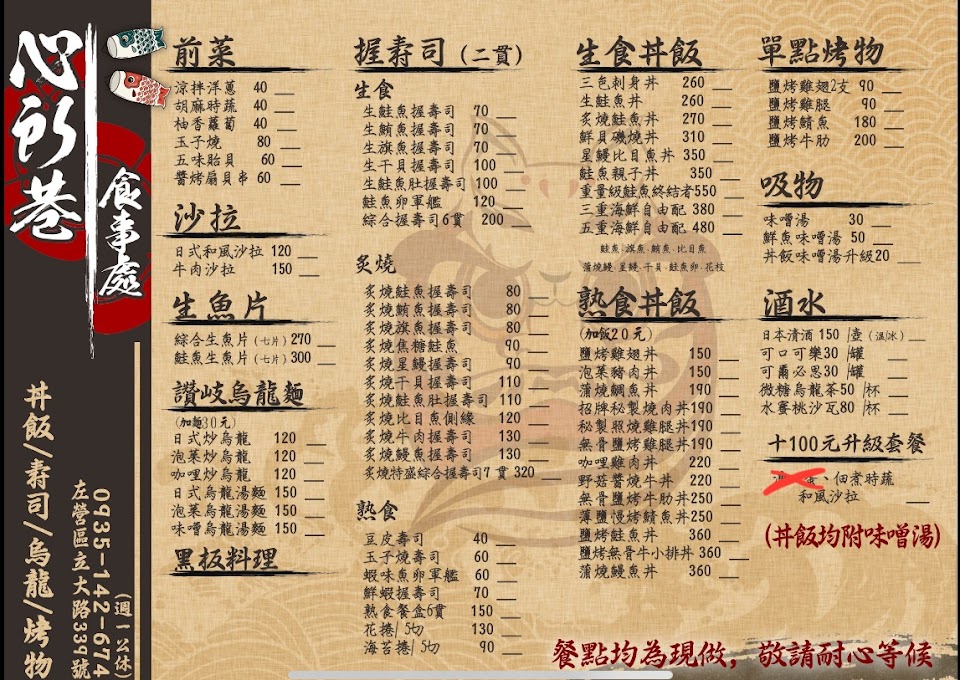 心町巷
食事處
丼飯/壽司/烏龍/烤物
左營區立大路339號
0935-142-674
(週一公休)
前菜
涼拌洋蔥 40
胡麻時蔬 40
柚香蘿蔔 40
玉子燒 80
五味貽貝 60
醬烤扇貝串 60
沙拉
日式和風沙拉 120
牛肉沙拉 150
生魚片
綜合生魚片(七片)270
鮭魚生魚片(七片)300
讚岐烏龍麵
(加麵30元)
日式炒烏龍 120
泡菜炒烏龍 120
咖哩炒烏龍 120
日式烏龍湯麵 150
泡菜烏龍湯麵 150
味噌烏龍湯麵 150
黑板料理
握壽司(二貫)
生食
生鮭魚握壽司 70
生鮪魚握壽司 70
生旗魚握壽司 70
生干貝握壽司 100
生鮭魚肚握壽司 100
鮭魚卵軍艦 120
綜合握壽司6貫 200
炙燒
炙燒鮭魚握壽司 80
炙燒鮪魚握壽司 80
炙燒旗魚握壽司 80
炙燒焦糖鮭魚 90
炙燒星鰻握壽司 90
炙燒干貝握壽司 110
炙燒鮭魚肚握壽司 110
炙燒比目魚側緣 120
炙燒牛肉握壽司 130
炙燒鰻魚握壽司 130
炙燒特盛綜合握壽司7貫 320
熟食
豆皮壽司 40
玉子燒壽司 60
蝦味魚卵軍艦 60
鮮蝦握壽司 70
熟食餐盒6貫 150
花捲/5切 130
海苔捲/5切 90
生食丼飯
三色刺身丼 260
生鮭魚丼 260
炙燒鮭魚丼 270
鮮貝磯燒丼 310
星鰻比目魚丼 350
鮭魚親子丼 350
重量級鮭魚終結者550
三重海鮮自由配 380
五重海鮮自由配 480
鮭魚.旗魚.鮪魚.比目魚
蒲燒鰻.星鰻.干貝.鮭魚卵.花枝
熟食丼飯
(加飯20元)
鹽烤雞翅丼 150
泡菜豬肉丼 150
蒲燒鯛魚丼 190
招牌秘製燒肉丼190
秘製照燒雞腿丼190
無骨鹽烤雞腿丼190
咖哩雞肉丼 220
野菇醬燒牛丼 220
無骨鹽烤牛肋丼250
薄鹽慢烤鯖魚丼250
鹽烤鮭魚丼 360
鹽烤無骨牛小排丼 360
蒲燒鰻魚丼 360
單點烤物
鹽烤雞翅2支 90
鹽烤雞腿 90
鹽烤鯖魚 180
鹽烤牛肋 200
吸物
味噌湯 30
鮮魚味噌湯 50
丼飯味噌湯升級20
酒水
日本清酒 150 /壺(溫/冰)
可口可樂30 /罐
可爾必思30 /罐
微糖烏龍茶50 /杯
水蜜桃沙瓦80 /杯
十100元升級套餐
、佃煮時蔬
和風沙拉
(丼飯均附味噌湯)
餐點均為現做，敬請耐心等候